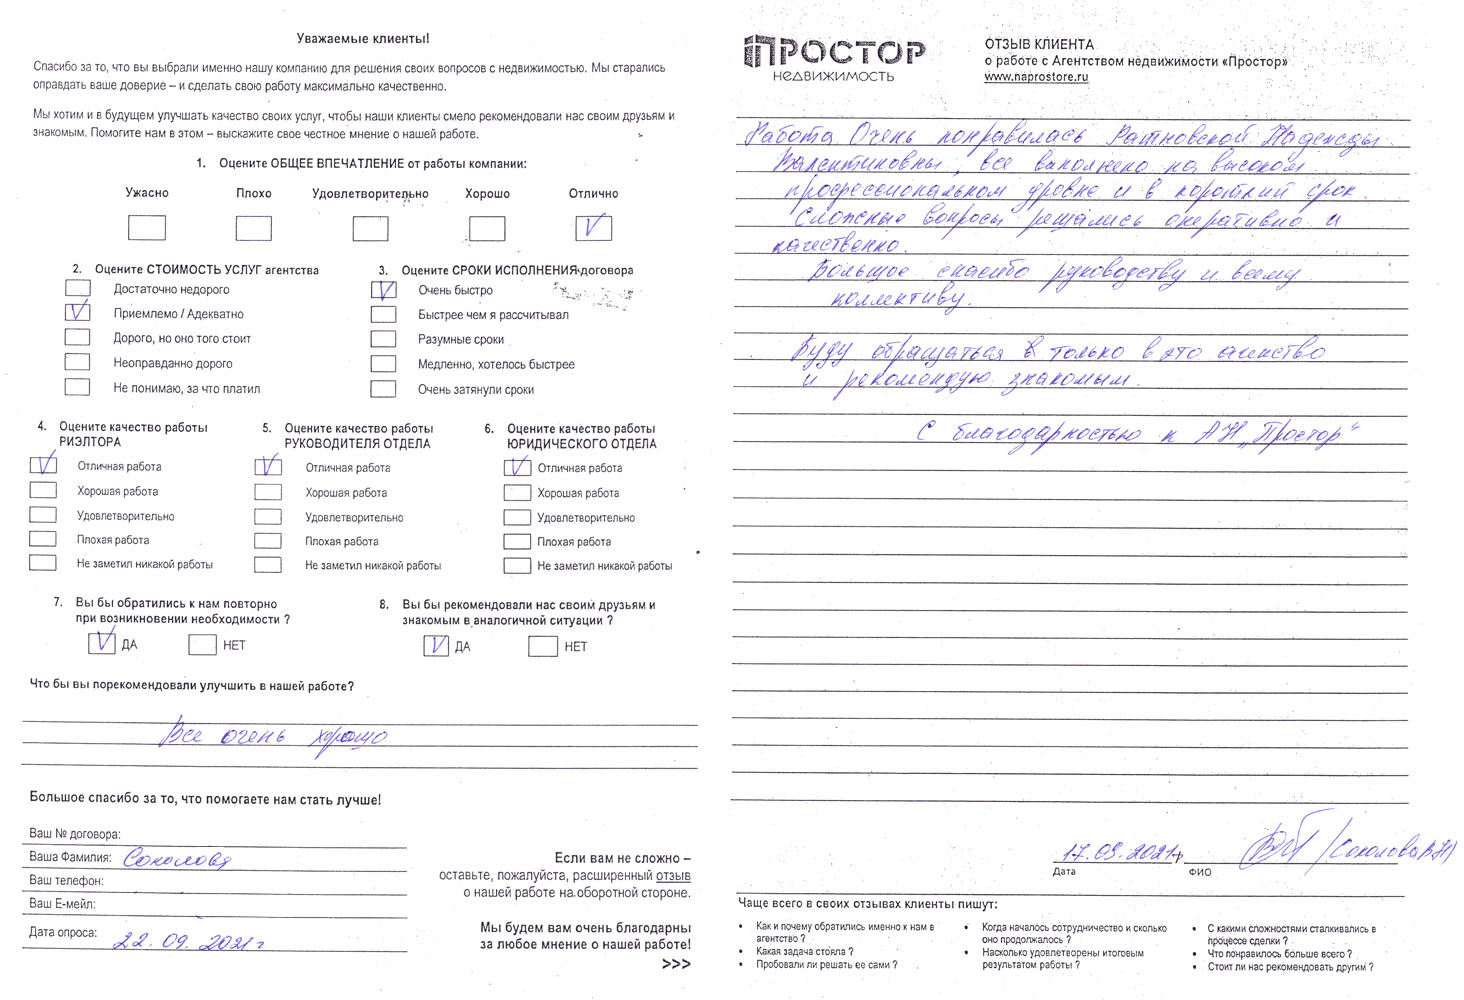 Уважаемые клиенты!
Спасибо за то, что вы выбрали именно нашу компанию для решения своих вопросов с недвижимостью. Мы старались
оправдать ваше доверие – и сделать свою работу максимально качественно.
Мы хотим и в будущем улучшать качество своих услуг, чтобы наши клиенты смело рекомендовали нас своим друзьям и
знакомым. Помогите нам в этом – выскажите свое честное мнение о нашей работе.
1. Оцените ОБЩЕЕ ВПЕЧАТЛЕНИЕ от работы компании:
Ужасно Плохо Удовлетворительно Хорошо Отлично
V
2. Оцените СТОИМОСТЬ УСЛУГ агентства
Достаточно недорого
V Приемлемо / Адекватно
Дорого, но оно того стоит
Неоправданно дорого
Не понимаю, за что платил
3. Оцените СРОКИ ИСПОЛНЕНИЯ договора
V Очень быстро
Быстрее чем я рассчитывал
Разумные сроки
Медленно, хотелось быстрее
Очень затянули сроки
4. Оцените качество работы
РИЭЛТОРА
V Отличная работа
Хорошая работа
Удовлетворительно
Плохая работа
Не заметил никакой работы
5. Оцените качество работы
РУКОВОДИТЕЛЯ ОТДЕЛА
V Отличная работа
Хорошая работа
Удовлетворительно
Плохая работа
Не заметил никакой работы
6. Оцените качество работы
ЮРИДИЧЕСКОГО ОТДЕЛА
V Отличная работа
Хорошая работа
Удовлетворительно
Плохая работа
Не заметил никакой работы
7. Вы бы обратились к нам повторно
при возникновении необходимости ?
V ДА НЕТ
8. Вы бы рекомендовали нас своим друзьям и
знакомым в аналогичной ситуации ?
V ДА НЕТ
Что бы вы порекомендовали улучшить в нашей работе?
Все очень хорошо
Большое спасибо за то, что помогаете нам стать лучше!
Ваш № договора:
Ваша Фамилия: Соколова
Ваш телефон:
Ваш Е-мейл:
Дата опроса: 22.09.2021г
Если вам не сложно –
оставьте, пожалуйста, расширенный отзыв
о нашей работе на оборотной стороне.
Мы будем вам очень благодарны
за любое мнение о нашей работе!
>>>
ПРОСТОР
НЕДВИЖИМОСТЬ
ОТЗЫВ КЛИЕНТА
о работе с Агентством недвижимости «Простор»
www.naprostore.ru
Работа Очень понравилась Ратновской Надежды
Валентиновны, все выполнено на высоком
профессиональном уровне и в короткий срок.
Сложные вопросы решались оперативно и
качественно.
Большое спасибо руководству и всему
коллективу.
Буду обращаться только в это агинство
и рекомендую знакомым.
С благодарностью к АН „Простор“
17.09.2021г /Соколова В.Н/
Дата ФИО
Чаще всего в своих отзывах клиенты пишут:
• Как и почему обратились именно к нам в
агентство ?
• Какая задача стояла ?
• Пробовали ли решать ее сами ?
• Когда началось сотрудничество и сколько
оно продолжалось ?
• Насколько удовлетворены итоговым
результатом работы ?
• С какими сложностями сталкивались в
процессе сделки ?
• Что понравилось больше всего ?
• Стоит ли нас рекомендовать другим ?